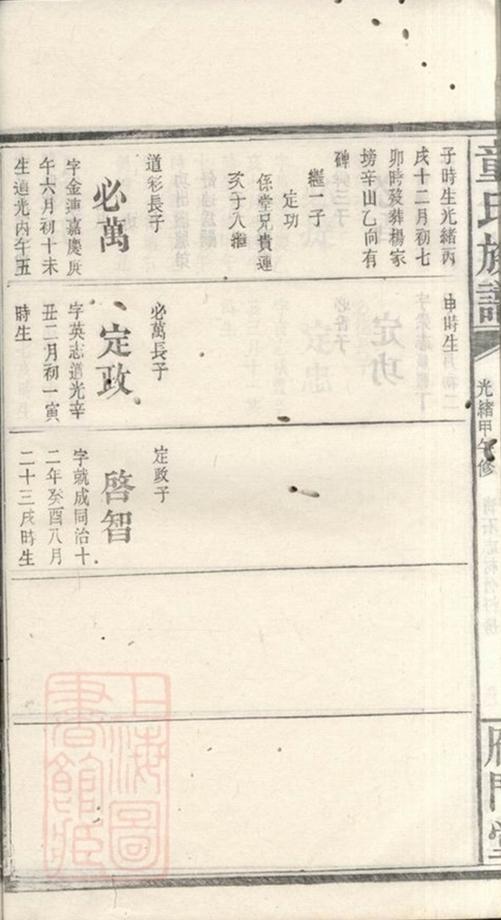 童氏族譜
光緒甲午修
雁門堂
子時生光緒丙
戌十二月初七
卯時殁葬楊家
塝辛山乙向有
碑
繼一子
定功
係堂兄貴連
次子入繼
道彩長子
必萬
字金連嘉慶庚
午六月初十未
生道光丙午五
申時生
必萬長子
定政
字英志道光辛
丑二月初一寅
時生
定政子
啓智
字就成同治十
二年癸酉八月
二十三戌時生
上海圖
書館藏